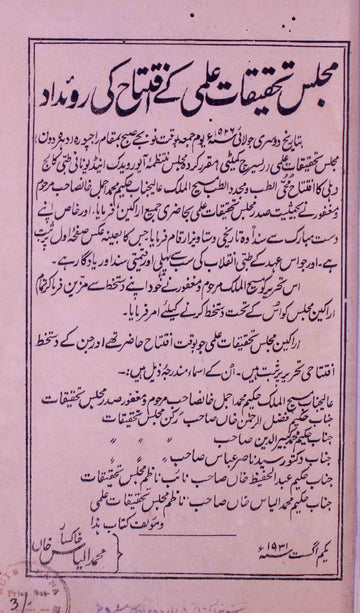 مجلس تحقیقات علمی کے افتتاح کی روئداد
بتاریخ دوسری جولائی ۱۹۲۶ء یوم جمعہ بوقت نو بجے صبح بمقام راجپورہ (دہرہ دون)
مجلس تحقیقات علمی (ریسرچ کمیٹی) مقرر کردہ مجلس منتظمہ آیورویدک اینڈ یونانی طبی کالج
دہلی کا افتتاح محی الطب و مجدد الطب مسیح الملک عالیجناب حکیم محمد اجمل خانصاحب مرحوم
ومغفور نے بحیثیت صدر مجلس تحقیقات علمی بحاضری جمیع اراکین فرمایا۔ اور خاص اپنے
دست مبارک سے سنداً وہ تاریخی دستاویز ارقام فرمایا جس کا بعینہ عکس صفحۂ اول پر ثبت
ہے۔ اور جو اس عہد کے طبی انقلاب کی سب سے پہلی اور قیمتی سند اور یادگار ہے۔
اس تحریر کو مسیح الملک مرحوم ومغفور نے خود اپنے دستخط سے مزین فرماکر تمام
اراکین مجلس کو اس کے تحت دستخط کرنے کیلئے امر فرمایا۔
اراکین مجلس تحقیقات علمی جو بوقت افتتاح حاضر تھے اور جن کے دستخط
افتتاحی تحریر پر ثبت ہیں۔ اُن کے اسماء مندرجۂ ذیل ہیں:۔
عالیجناب مسیح الملک حکیم محمد اجمل خانصاحب مرحوم ومغفور صدر مجلس تحقیقات
جناب حکیم فضل الرحمٰن خاں صاحب رُکن مجلس تحقیقات
جناب حکیم محمد کبیرالدین صاحب " " "
جناب دکتور سید ناصر عباس صاحب " " "
جناب حکیم عبدالحفیظ خاں صاحب نائب ناظم مجلس تحقیقات
جناب حکیم محمد الیاس خاں صاحب ناظم مجلس تحقیقات علمی
ومؤلف کتاب ہذا
یکم اگست ۱۹۳۱ء
خاکسار
محمد الیاس خاں
3/-